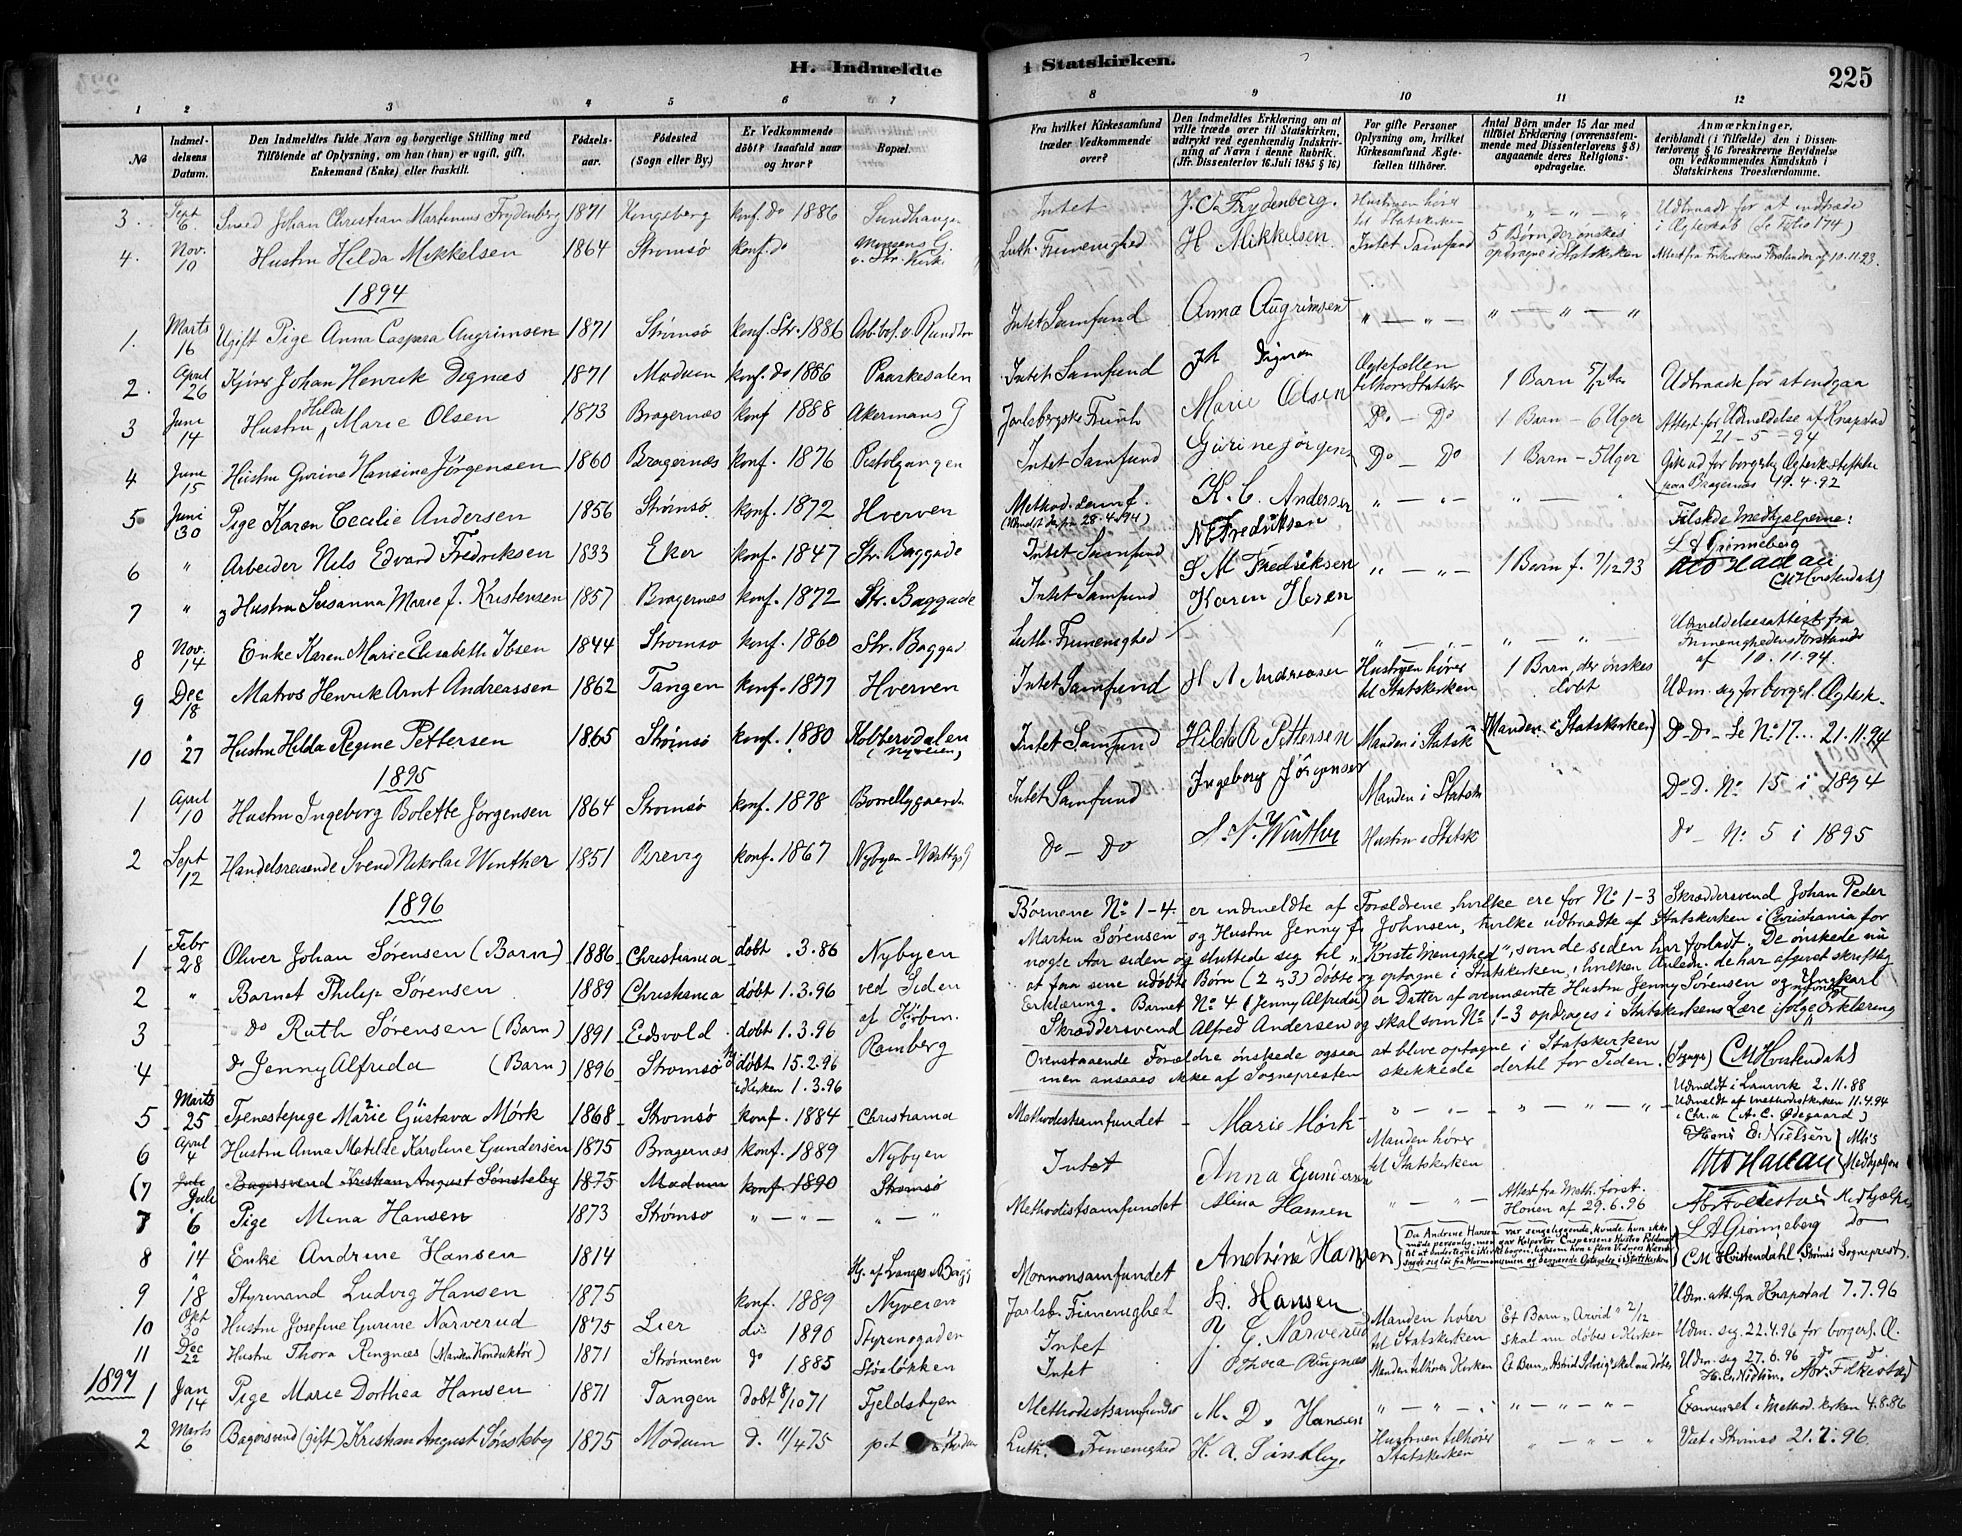 H. Indmeldte i Statskirken.
225
1 2 3 4 5 6 7 8 9 10 11 12
No
Indmeldelsens Datum.
Den Indmeldtes fulde Navn og borgerlige Stilling med
Tilföiende af Oplysning, om han (hun) er ugift, gift,
Enkemand (Enke) eller fraskilt.
Födselsaar.
Födested
(Sogn eller By.)
Er Vedkommende
döbt? Isaafald naar
og hvor?
Bopæl.
Fra hvilket Kirkesamfund
træder Vedkommende
over?
Den Indmeldtes Erklæring om at
ville træde over til Statskirken,
udtrykt ved egenhændig Indskrivning
af Navn i denne Rubrik.
(Jfr. Dissenterlov 16 Juli 1845 § 16)
For gifte Personer
Oplysning om, hvilket
Kirkesamfund Ægtefællen
tilhörer.
Antal Börn under 15 Aar med
tilföiet Erklæring (overensstemmende
med Dissenterlovens § 8)
angaaende deres Religionsopdragelse.
Anmærkninger,
deriblandt (i Tilfælde) den i Dissenterlovens
§ 16 foreskrevne Bevidnelse
om Vedkommendes Kundskab i
Statskirkens Troeslærdomme.
3. Sept 6. Svend Johan Christian Martinius Frydenberg 1871 Kongsberg konf. do 1886 Intet J. C. M. Frydenberg. Hustruen hører til Statskirken " — " — " Udtraadt for at indtræde i Ægteskab (Se Folio 174)
4. Nov. 10 Hustru Hilda Mikkelsen 1864 Strømsø konf. do Luth. Frimenighed H Mikkelsen. Intet Samfund 5 Børn der ønskes opdragne i Statskirken Attest fra Frikirkens Forstander af 10.11.93.
1894
1. Marts 16 Ugift Pige Anna Caspara Augrimsen 1871 Strømsø konf. Str. 1886 Intet Samfund Anna Augrimsen " — " — " " — " — " — "
2. April 26 Johan Henrik Dignæs 1871 Modum konf. do 1886 Paarkesalen Intet Samfund J H Dignæs Ægtefællen tilhører Statskir 1 Barn 5/12 Aar Udtraadt for at indgaa
3 Juni 14 Hustru Hilda Marie Olsen 1873 Bragernæs konf 1888 Akermans G Jarlsbergske Frimh Marie Olsen Do — Do 1 Barn — 6 Uger Attest for Udmeldelse af Knapstad 21-5-94
4 Juni 15 Hustru Gurine Hansine Jörgensen 1860 Bragernæs konf. 1876 Pistolgangen Intet Samfund Gurine Jörgens Do — Do 1 Barn — 5 Uger Gik ud for borgerlig Ægteskabsstiftelse paa Bragernæs 19.4.92
5 Juni 30 Pige Karen Cecilie Andersen 1856 Strømsø. konf. 1872 Hverven Method.samf. (Udmeldt derfra 28.4.94) K. C. Andersen " — " — " — "
6 " Arbeider Nils Edvard Fredriksen 1833 Eker konf. 1847 Str. Baggade Intet Samfund N E Fredriksen " — " — " 1 Barn f. 7/12 93 Tilstede Medhjælperne: L A Grønneberg Otto Hallau (CMHvistendahl)
7 " g Hustru Susanna Marie f. Kristensen 1857 Bragernæs konf. 1872 Str. Baggade Intet Samfund S M Fredriksen
8 Nov. 14 Enke Karen Marie Elisabeth Ibsen 1844 Strømsø konf. 1860 Str. Baggad Luth. Frimenighed Karen Ibsen " — " — " " — " Udmeldelsesattest fra Frimenighedens Forstander af 10.11.94.
9 Dec 18 Matros Henrik Arnt Andreassen 1862 Tangen konf. 1877 Hverven Intet Samfund H A Andreasen Hustruen hører til Statskirken 1 Barn, der ønskes døbt Udm. sig for borgerl. Ægtesk.
10 " 27 Hustru Hilda Regine Pettersen 1865 Strømsø konf. 1880 Kobbervdalen (Nyveien) Intet Samfund Hilda R Pettersen Manden i Statsk (Manden i Statskirken) Do — Do — Se No 17.. 21.11.94
1895
1 April 10 Hustru Ingeborg Bolette Jörgensen 1864 Strømsø konf. 1878 Intet Samfund Ingeborg Jörgensen Manden i Statsk Do — D. No 15 i 1894
2 Sept 12 Handelsreisende Svend Nikolai Winther 1851 Brevig konf. 1867 Do — Do S. N. Winther Hustru i Statsk Do — No 5 i 1895
1896
1 Febr 28 Oliver Johan Sørensen (Barn) 1886 Christiania døbt .3.86 Nybyen
2 " Barnet Philip Sørensen 1889 Christiania døbt 1.3.96 ved Siden
3 do Ruth Sørensen (Barn) 1891 Eidsvold døbt 1.3.96 af Kjøbm.
4 do Jenny Alfreda (Barn) 1896 Strømsø Hd døbt 15.2.96 i Kirken 1.3.96 Ramberg
Børnene No 1-4 er indmeldte af Forældrene, hvilke ere for No 1-3 Skræddersvend Johan Peder
Martin Sørensen og Hustru Jenny f. Johnsen, hvilke udtraadte af Statskirken i Christiania for
nogle Aar siden og sluttede sig til „Kristi Menighed", som de siden har forladt. De ønskede nu
at faa sine udøbte Børn (2 og 3) døbte og optagne i Statskirken, i hvilken Anledn. de har afgivet skriftlig
Erklæring. Barnet No 4 (Jenny Alfreda) er Datter af ovennævnte Hustru Jenny Sørensen og Ungkarl
Skræddersvend Alfred Andersen og skal som No 1-3 opdrages i Statskirkens Lære ifølge Erklæring
Ovenstaaende Forældre ønskede ogsaa at blive optagne i Statskirken
men ansaaes ikke af Sognepresten skikkede dertil for Tiden. (Sognepr) CMHvistendahl
5 Marts 25 Tjenestepige Marie Gustava Mørk 1868 Strømsø konf. 1884 Christiania Methodistsamfundet Marie Mørk " — " — " " — " — " — " Udmeldt i Laurvik 2.11.88 Udmeldt af Methodistkirken 11.4.94 i Chr.a (A. C. Ødegaard)
6 April 4 Hustru Anna Matilde Karoline Gundersen 1875 Bragernæs konf. 1889 Nybyen Intet Anna Gundersen Manden hører til Statskirken Hans E. Nielsen Otto Hallau Medhjælpere
(7 Juli Bagersvend Kristian August Sønsteby 1875 Modum konf. 1890 Strømsø
7 Juli 6 Pige Mina Hansen 1873 Strømsø " — " — " " — " Methodistsamfundet Mina Hansen " — " — " Attest fra Meth. forst. Honen af 29.6.96 Abr Folkestad Medhjælper
8 " 14 Enke Andrine Hansen 1814 Mormonsamfundet Andrine Hansen Da Andrine Hansen var sengeliggende, kunde hun ikke møde personlig, men gav Kolportör Caspersens Hustru Fuldmagt til at undertegne i Kirkebogen, ligesom hun i flere Vidners Nærvær sagde sig løs fra Mormonismen og begjærede Optagelse i Statskirken L A Grønneberg do CM Hvistendahl, Strømsø Sogneprest.
9 " 18 Styrmand Ludvig Hansen 1875 konf. 1889 Nyveien Jarlsb. Frimenighed L. Hansen Udm. att. fra Knapstad 7.7.96
10 Okt 30 Hustru Josefine Gurine Narverud 1875 Lier do 1890 Styrmogaden Intet J. G. Narverud Manden hører til Statskirken Et Barn „Arvid" 2/12 skal nu døbes i Kirken Udm. sig. 22.4.96 for borgerl. Æ.
11 Dec 22 Hustru Thora Ringnæs (Manden Konduktør) 1871 Strømmen do 1885 Støsløkken Intet Thora Ringnæs Manden tilhører Kirken Et Barn „Astrid Solveig" skal nu døbes Udm. sig 27.6.96 do d. H. E. Nielsen. Abr. Folkestad
1897
1 Jan 14 Pige Marie Dorthea Hansen 1871 Tangen døbt 8/10 71 Fjeldsbyen Methodistsamfundet M. D. Hansen " — " — " " — " — " — " i Method. kirken 4.8.86
2 Marts 6 Bagersvend (gift) Kristian August Sønsteby 1875 Modum d. 11/4 75 p.t Luth. Frimenighed K. A. Sønsteby. Hustruen tilhører Statskirken " — " — " Strømsø 21.7.96